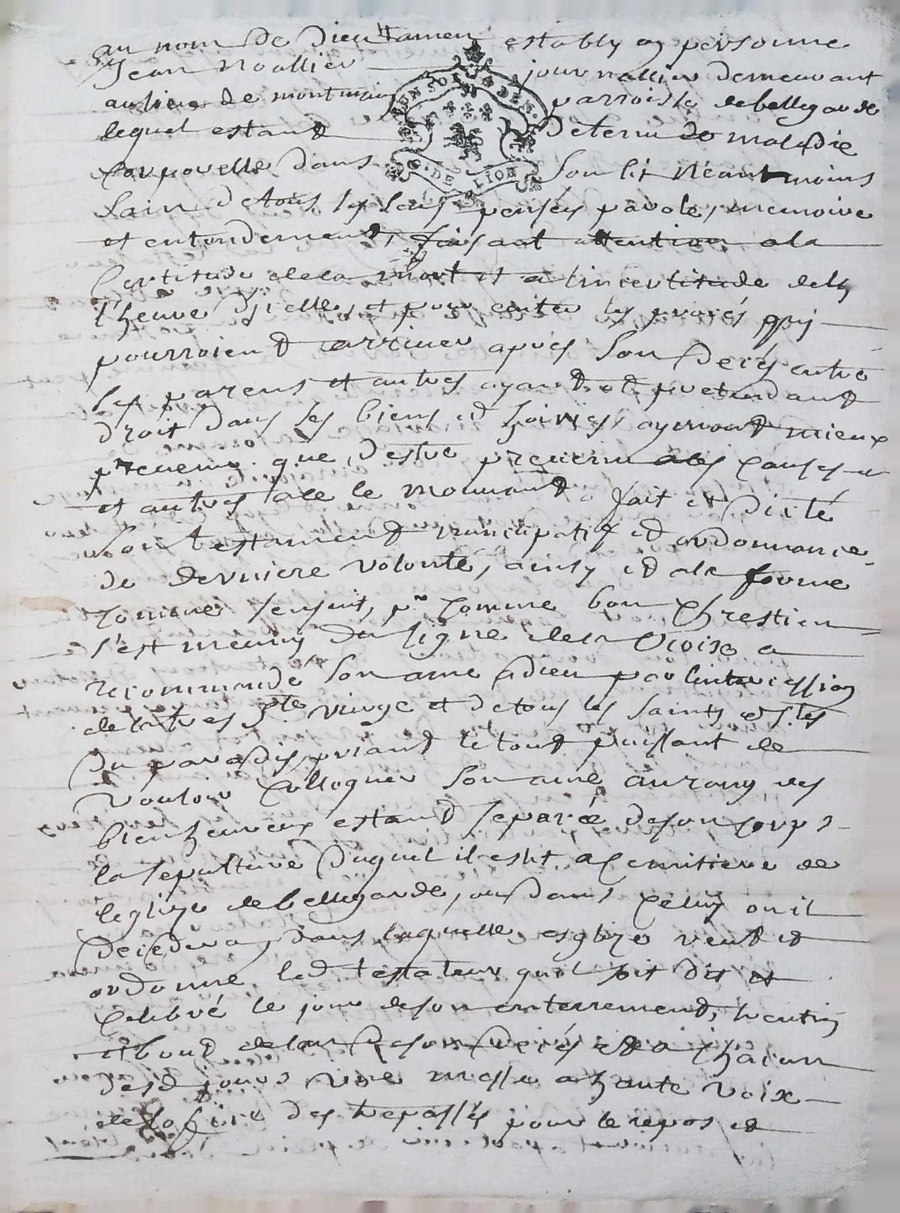 au nom de dieu amen estably en personne
Jean noallier journallier demeurant
au lieu de parroisse de bellegarde
lequel estant detenu de maladie
corporelle dans son lit neantmoins
sain de tous ses sens pensées parole, memoire
et entendement, faisant attention a la
certitude de la mort et a lincertitude de
l'heure dicelle, et pour eviter les procés qui
pourroient arriver aprés son decés entre
les parens et autres ayant et pretendant
droit dans les biens et hoiries aymant mieux
prevenir que destre prevenu
et autres a le mourant a fait et dicté
son testament nuncupatif et ordonnance
de derniere volonté, ainsy et de la forme
comme sensuit, pr comme bon Chrestien
s'est muny du signe de la Croix a
recommandé son ame a dieu par lintercession
de la tres ste vierge et de tous les saints et stes
du paradis, priant le tout puissant de
vouloir colloquer son ame au rang des
bienheureux estant separée de son corps
la sepulture duquel il eslit au cemitiere de
leglize de bellegarde, ou dans celuy ou il
decedera, dans laquelle esglize veut et
ordonne led testateur quil soit dit et
celebré le jour de son enterrement, huentin
et bout de lan de son decés et a chacun
desd jours une messe a haute voix
de lofice des trepassés pour le repos et